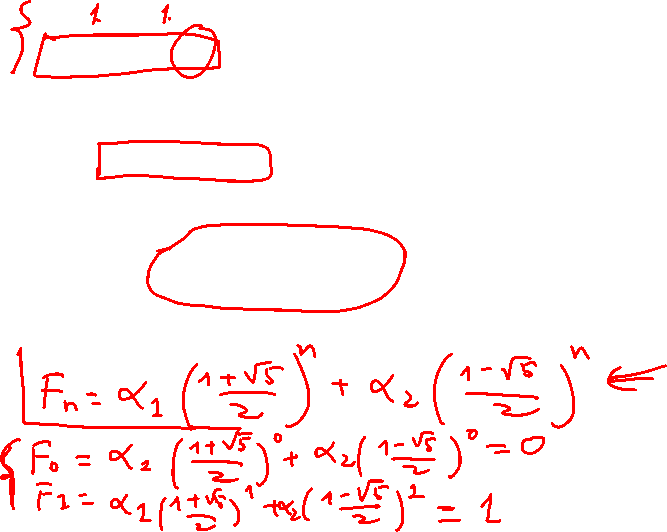 1 1
Fₙ = α₁ ((1+√5)/2)ⁿ + α₂ ((1-√5)/2)ⁿ ←
F₀ = α₁ ((1+√5)/2)⁰ + α₂ ((1-√5)/2)⁰ = 0
F₁ = α₁ ((1+√5)/2)¹ + α₂ ((1-√5)/2)¹ = 1